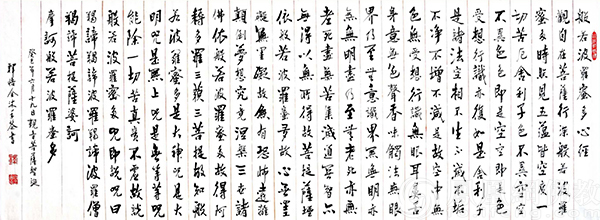 般若波羅蜜多心經
觀自在菩薩行深般若波羅
蜜多時照見五蘊皆空度一
切苦厄舍利子色不異空空
不異色色即是空空即是色
受想行識亦復如是舍利子
是諸法空相不生不滅不垢
不淨不增不減是故空中無
色無受想行識無眼耳鼻舌
身意無色聲香味觸法無眼
界乃至無意識界無無明亦
無無明盡乃至無老死亦無
老死盡無苦集滅道無智亦
無得以無所得故菩提薩埵
依般若波羅蜜多故心無罣
礙無罣礙故無有恐怖遠離
顛倒夢想究竟涅槃三世諸
佛依般若波羅蜜多故得阿
耨多羅三藐三菩提故知般
若波羅蜜多是大神咒是大
明咒是無上咒是無等等咒
能除一切苦真實不虛故說
般若波羅蜜多咒即說咒曰
揭諦揭諦波羅揭諦波羅僧
揭諦菩提薩婆訶
摩訶般若波羅蜜多
癸巳年六月十九日觀音菩薩聖誕